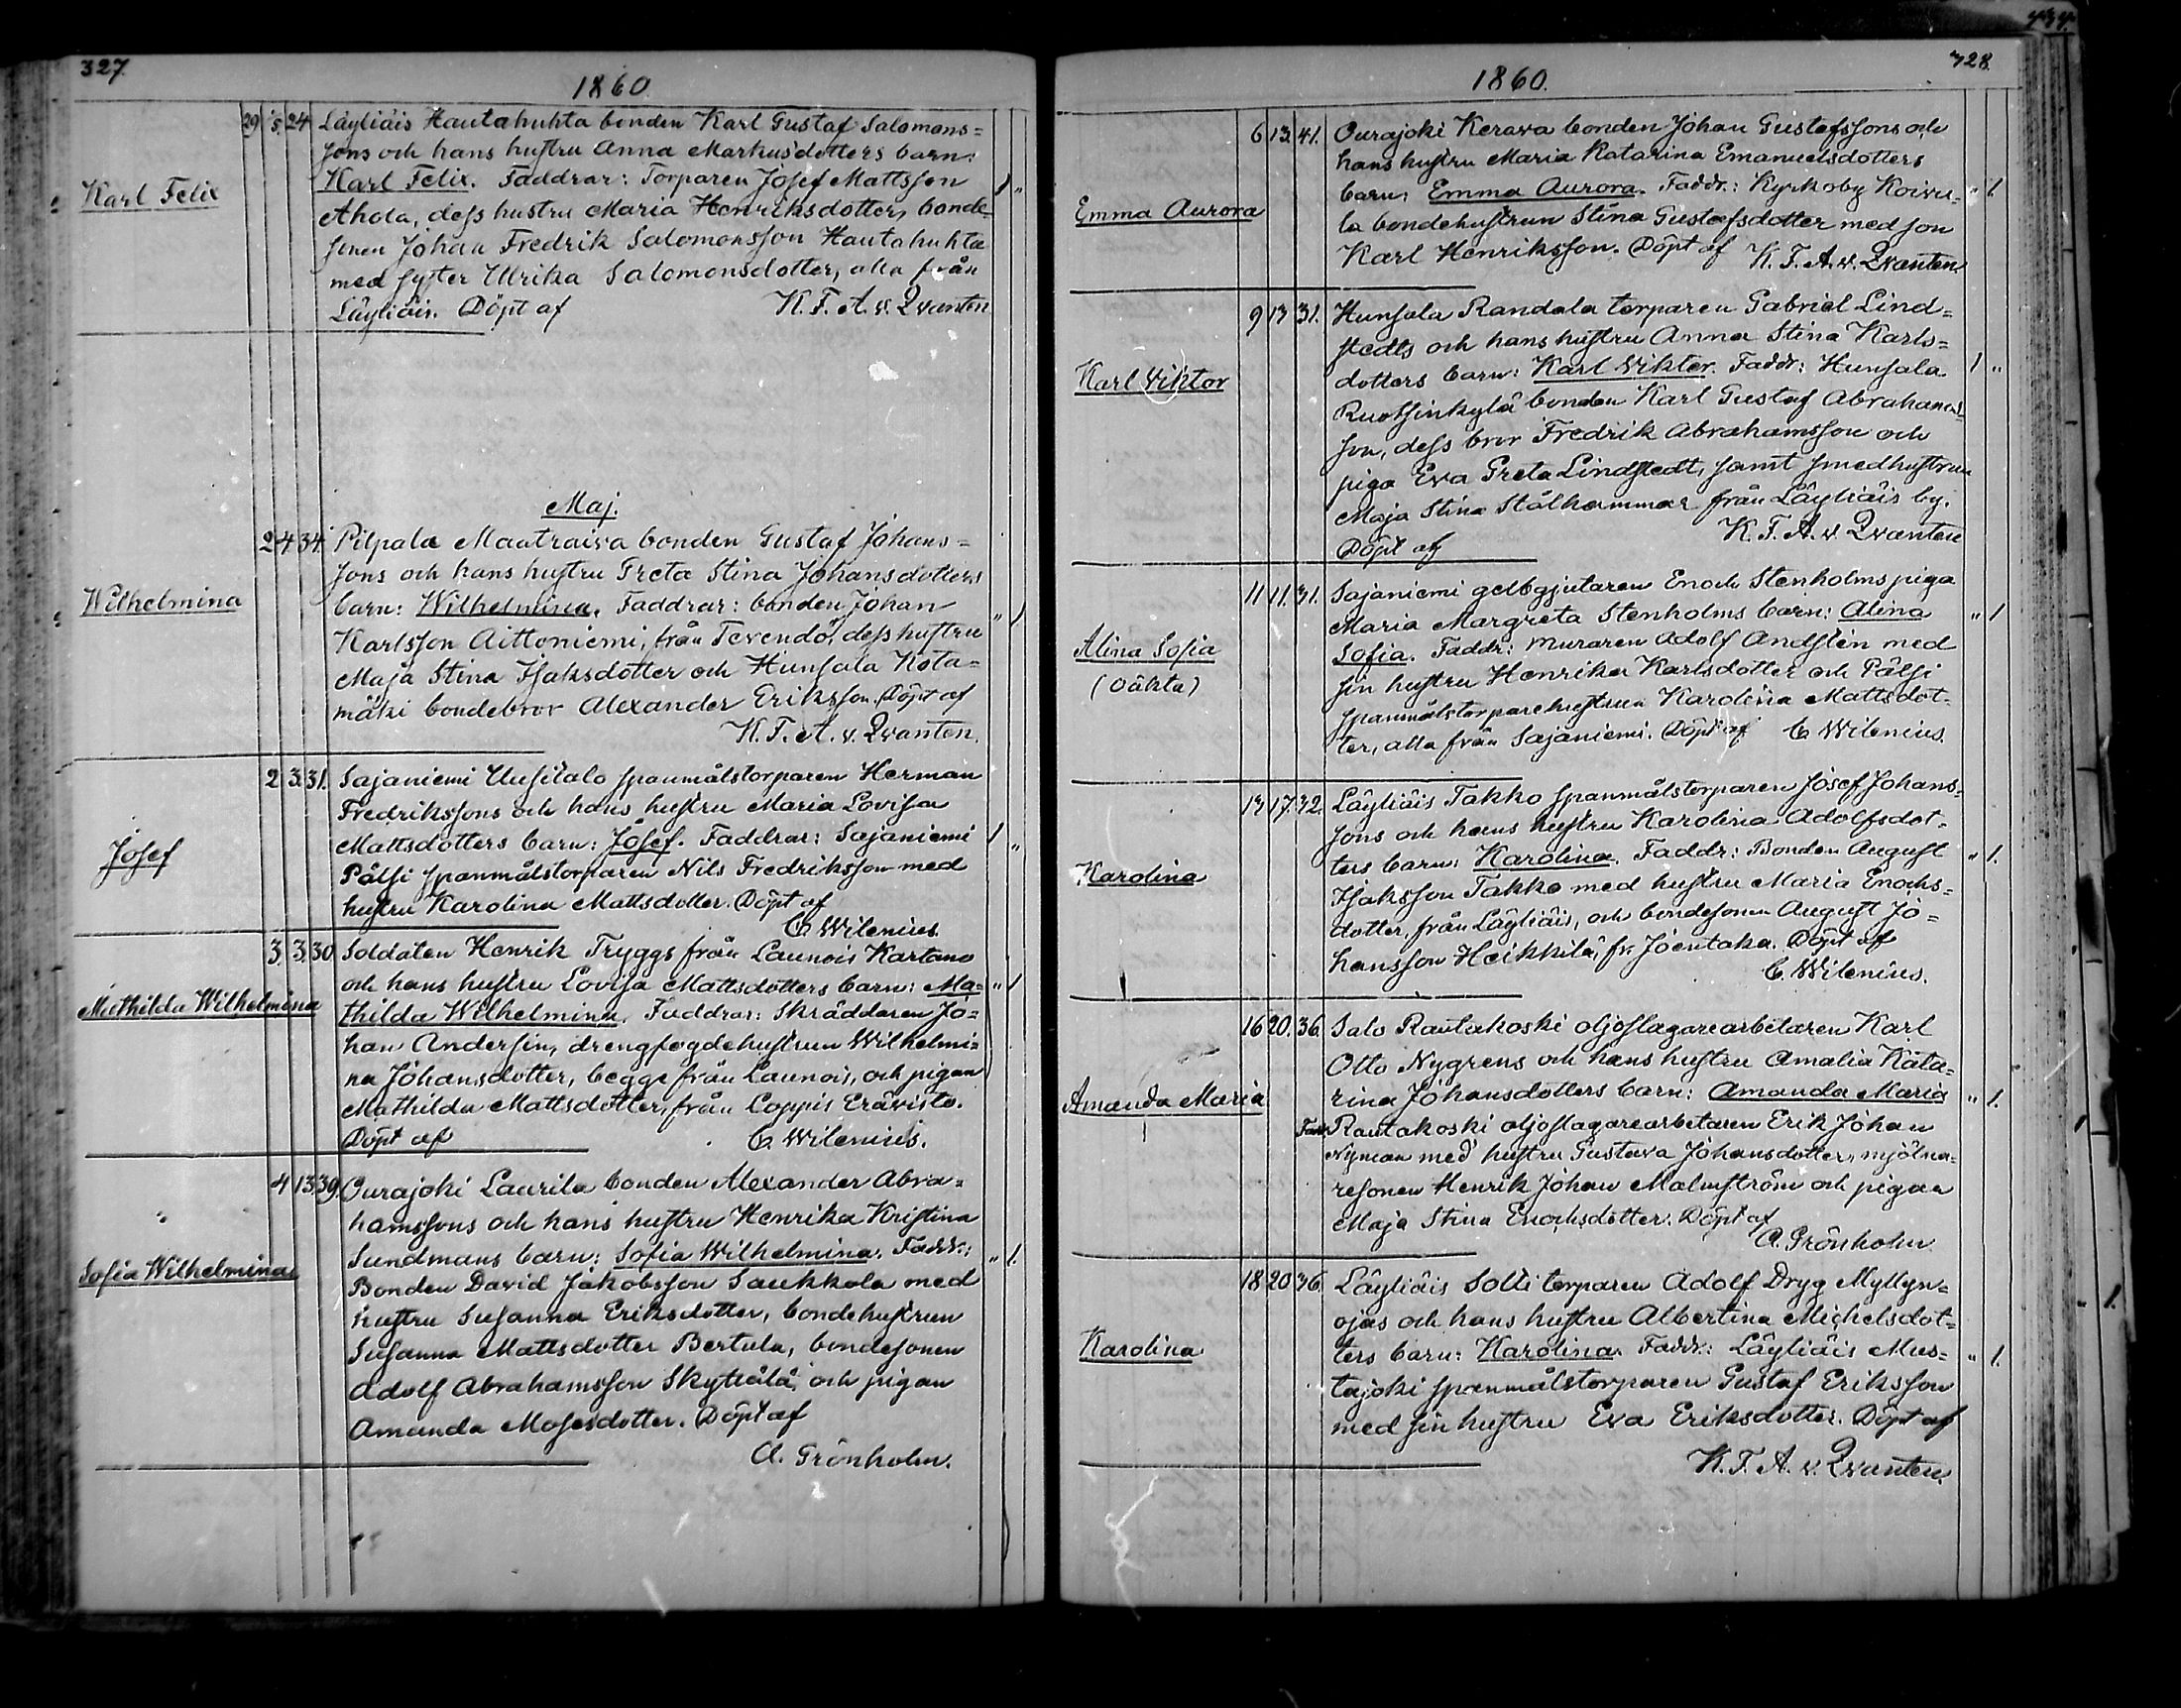 327.
1860
29 5. 24 Läyliäis Hautahuhta bonden Karl Gustaf Salomons=
sons och hans hustru Anna Markusdotters barn:
Karl Felix. Faddrar: Torparen Josef Mattsson
Karl Felix
1 "
Ahola, dess hustru Maria Henriksdotter, bonde=
sonen Johan Fredrik Salomonsson Hautahuhta
med syster Ulrika Salomonsdotter, alla från
Läyliäis. Döpt af K. F. A. v. Qvanten
Maj.
2 4 34. Pilpala Mautraiva bonden Gustaf Johans=
sons och hans hustru Greta Stina Johansdotters
Wilhelmina
barn: Wilhelmina. Faddrar: bonden Johan
" 1
Karlsson Aittoniemi, från Tevendö, dess hustru
Maja Stina Isaksdotter och Hunsala Kota=
mäki bondebror Alexander Eriksson. Döpt af
K. F. A. v. Qvanten.
2 3. 31. Sajaniemi Uusitalo spanmålstorparen Herman
Fredrikssons och hans hustru Maria Lovisa
Mattsdotters barn: Josef. Faddrar: Sajaniemi
1 "
Josef
Pälsi spanmålstorparen Nils Fredriksson med
hustru Karolina Mattsdotter. Döpt af
C. Wilenius.
3. 3. 30. Soldaten Henrik Tryggs från Launois Kartano
och hans hustru Lovisa Mattsdotters barn: Ma=
" 1
Mathilda Wilhelmina
thilda Wilhelmina. Faddrar: Skräddaren Jo=
han Andersin, drengfogdehustrun Wilhelmi=
na Johansdotter, begge från Launois, och pigan
Mathilda Mattsdotter, från Loppis Erävisto.
Döpt af C. Wilenius.
4 13. 39. Ourajoki Laurila bonden Alexander Abra=
hamssons och hans hustru Henrika Kristina
Sundmans barn: Sofia Wilhelmina. Faddr.:
" 1.
Sofia Wilhelmina
Bonden David Jakobsson Saukkola med
hustru Susanna Eriksdotter, bondehustrun
Susanna Mattsdotter Bertula, bondesonen
Adolf Abrahamsson Skyttälä, och pigan
Amanda Mosesdotter. Döpt af
A. Grönholm.
328.
1860.
6 13. 41. Ourajoki Kerava bonden Johan Gustafssons och
hans hustru Maria Katarina Emanuelsdotters
barn: Emma Aurora. Faddr.: Kyrkoby Koivu=
" 1.
Emma Aurora
la bondehustrun Stina Gustafsdotter med son
Karl Henriksson. Döpt af K. F. A. v. Qvanten
9 13 31. Hunsala Randala torparen Gabriel Lind=
stedts och hans hustru Anna Stina Karls=
Karl Viktor
dotters barn: Karl Viktor. Faddr: Hunsala
1 "
Ruotsinkylä bonden Karl Gustaf Abrahams=
son, dess bror Fredrik Abrahamsson och
piga Eva Greta Lindstedt, samt smedhustrun
Maja Stina Stålhammar från Läyliäis by.
Döpt af K. F. A. v. Qvanten
11 11. 31. Sajaniemi gelbgjutaren Enoch Stenholms piga
Maria Margreta Stenholms barn: Alina
" 1
Alina Sofia
(Oäkta)
Sofia. Faddr: Muraren Adolf Andstén med
sin hustru Henrika Karlsdotter och Pälsi
spanmålstorparehustrun Karolina Mattsdot=
ter, alla från Sajaniemi. Döpt af C. Wilenius.
13 17. 32. Läyliäis Takko spanmålstorparen Josef Johans=
sons och hans hustru Karolina Adolfsdot=
ters barn: Karolina. Faddr: Bonden August
" 1.
Karolina
Isaksson Takko med hustru Maria Enochs=
dotter, från Läyliäis, och bondesonen August Jo=
hansson Heikkilä, fr. Joentaka. Döpt af
C. Wilenius.
16 20. 36. Salo Rautakoski oljoslagarearbetaren Karl
Otto Nygrens och hans hustru Amalia Kata=
Amanda Maria
rina Johansdotters barn: Amanda Maria
" 1.
Fadd. Rautakoski oljoslagarearbetaren Erik Johan
Nyman med hustru Gustava Johansdotter, mjölna=
resonen Henrik Johan Malmström och pigan
Maja Stina Enochsdotter. Döpt af
A. Grönholm
18 20 36. Läyliäis Solli torparen Adolf Dryg Myllyn=
ojas och hans hustru Albertina Michelsdot=
Karolina
ters barn: Karolina. Faddr.: Läyliäis Mus=
" 1.
tajoki spanmålstorparen Gustaf Eriksson
med sin hustru Eva Eriksdotter. Döpt af
K. F. A. v. Qvanten.